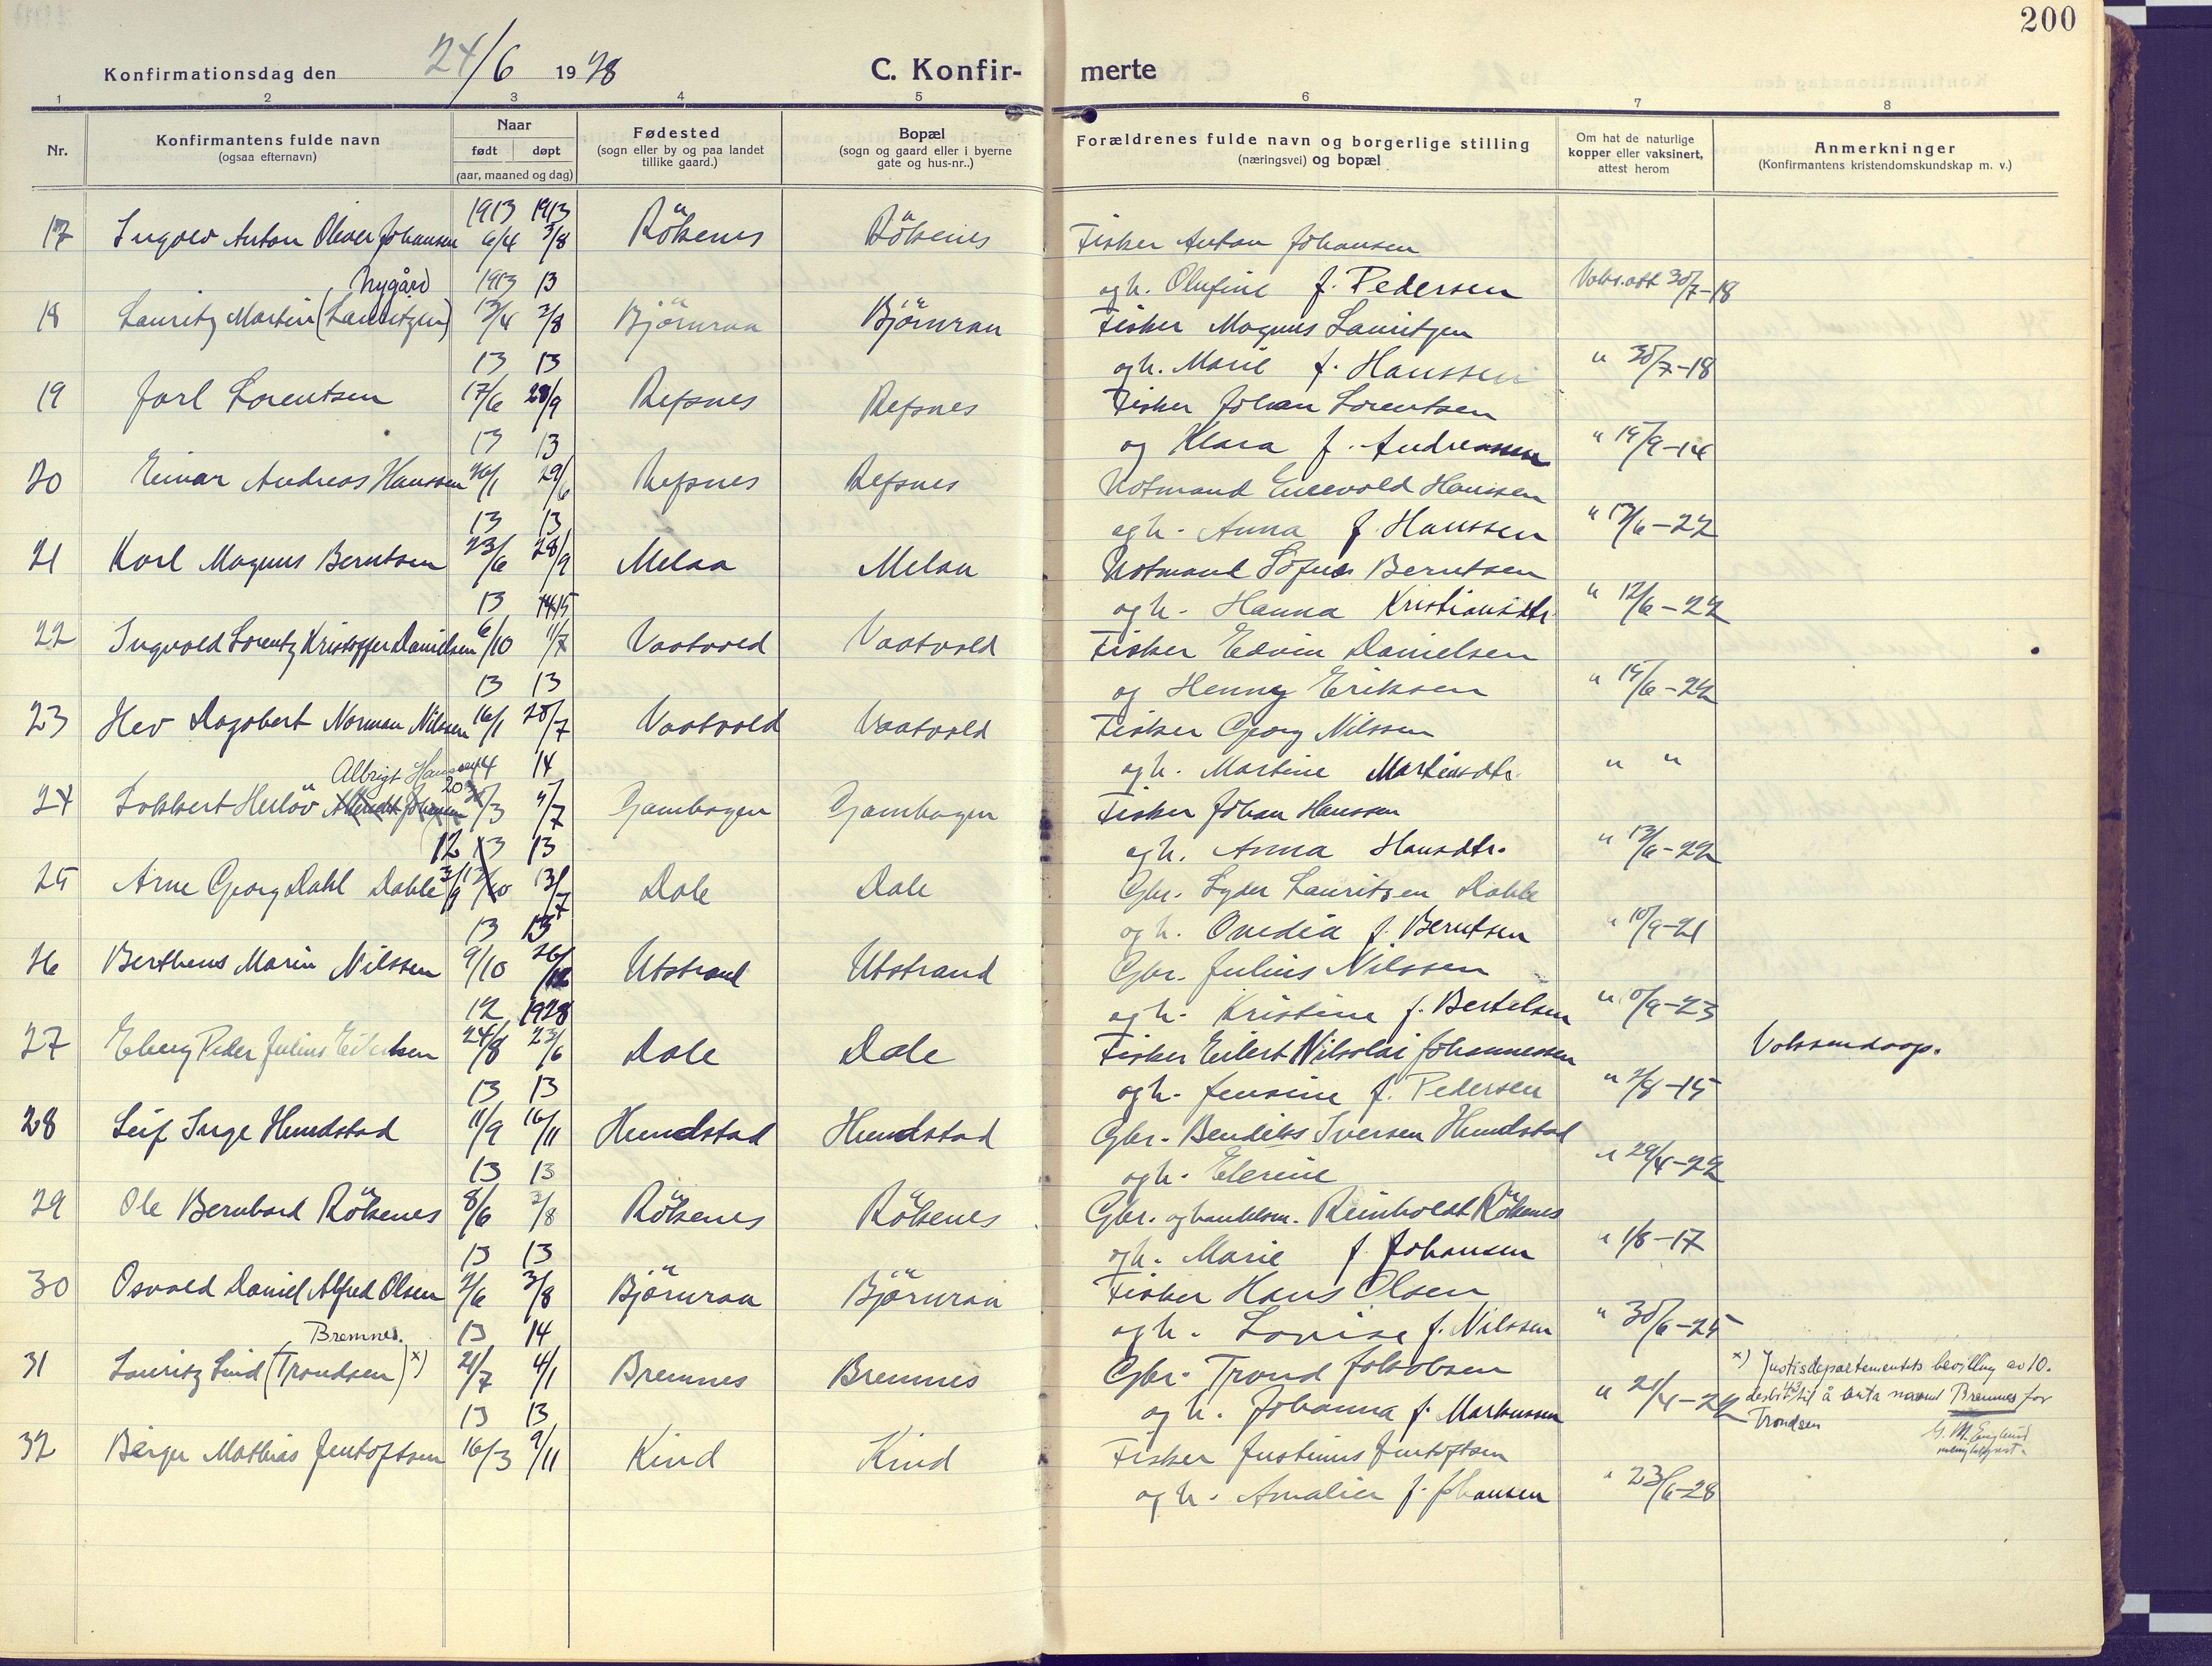 200
Konfirmationsdag den 24/6 1928
C. Konfir- merte
1 2 3 4 5 6 7 8
Nr.
Konfirmantens fulde navn
(ogsaa efternavn)
Naar
født døpt
(aar, maaned og dag)
Fødested
(sogn eller by og paa landet
tillike gaard.)
Bopæl
(sogn og gaard eller i byerne
gate og hus-nr..)
Forældrenes fulde navn og borgerlige stilling
(næringsvei) og bopæl
Om hat de naturlige
kopper eller vaksinert,
attest herom
Anmerkninger
(Konfirmantens kristendomskundskap m. v.)
1913 1913
17 Ingolv Anton Oliver Johansen 6/4 3/8 Röksenes Röksenes Fisker Anton Johansen
Nygård 1913 13 og h. Olufine f. Pedersen Vaks.att 30/7-18
18 Lauritz Martin (Lauritzen) 13/4 3/8 Björnraa Björnraa Fisker Magnus Lauritzen
13 13 og h. Marie f. Hanssen " 30/7-18
19 Jarl Lorentsen 17/6 28/9 Refsnes Refsnes Fisker Johan Lorentsen
13 13 og Klara f. Andreassen " 15/9-14
20 Einar Andreas Hanssen 26/1 29/6 Refsnes Refsnes Notmand Enevold Hanssen
13 13 og h. Anna f. Hanssen " 13/6-22
21 Karl Magnus Berntsen 23/6 28/9 Melaa Melaa Notmand Sofus Berntsen
13 15 og h. Hanna Kristiansdtr. " 12/6-22
22 Ingvald Lorentz Kristoffer Danielsen 6/10 11/7 Vaatvold Vaatvold Fisker Edvin Danielsen
13 13 og Henny Eriksen " 15/6-22
23 Hev Dagobert Norman Nilsen 16/1 20/7 Vaatvold Vaatvold Fisker Georg Nilssen
Albrigt Hanssen 14 14 og h. Martine Martinsdtr. " "
24 Lokkert Herlöv 20/3 4/7 Gambogen Gambogen Fisker Johan Hanssen
12 13 13 og h. Anna Hansdtr. " 13/6-22
25 Arne Georg Dahl Dahle 3/9 13/7 Dale Dale Gbr. Syder Lauritsen Dahle
13 13 og h. Ovedia f. Berntsen " 10/9-21
26 Berthens Marin Nilssen 9/10 26/12 Utstrand Utstrand Gbr. Julius Nilssen
12 1928 og h. Kristine f. Bertelsen " 10/9-23
27 Eberg Peder Julius Eilertsen 24/8 23/6 Dale Dale Fisker Eilert Nikolai Johannessen Voksendaap.
13 13 og h. Jensine f. Pedersen " 2/8-15
28 Leif Inge Hundstad 11/9 16/11 Hundstad Hundstad Gbr. Bendiks Iversen Hundstad
13 13 og h. Elerine " 29/4-22
29 Ole Bernhard Röksenes 8/6 3/8 Röksenes Röksenes Gbr. og handelsm. Reinholdt Röksenes
13 13 og h. Marie f. Johansen " 1/8-17
30 Osvald Daniel Alfred Olsen 2/6 3/8 Björnraa Björnraa Fisker Hans Olsen
Bremnes. 13 14 og h. Lovise f. Nilssen " 30/6-25
31 Lauritz Lind (Trondsen) x) 21/7 4/1 Bremnes Bremnes Gbr. Trond Jakobsen
x) Justisdepartementets bevilling av 10.
desbr. 43 til å anta navnet Bremnes for
Trondsen
G. M. Englund
13 13 og h. Johanna f. Markussen " 21/4-22
32 Birger Mathias Jentoftsen 16/3 9/11 Kind Kind Fisker Justinus Jentoftsen
og h. Amalie f. Johansen " 23/6-28